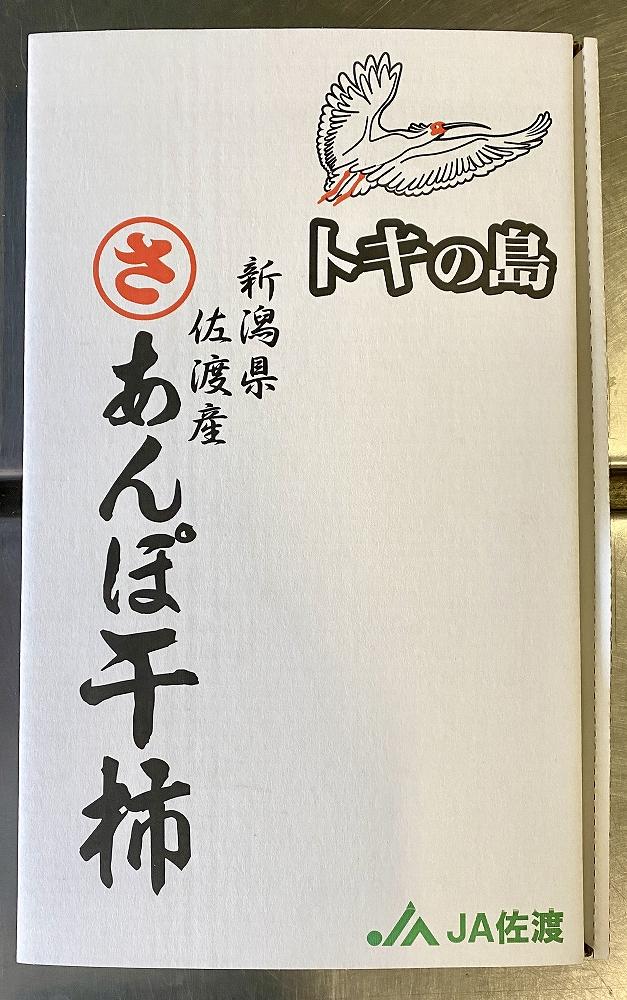 トキの島
新潟県
佐渡産
さ
あんぽ干柿
JA JA佐渡